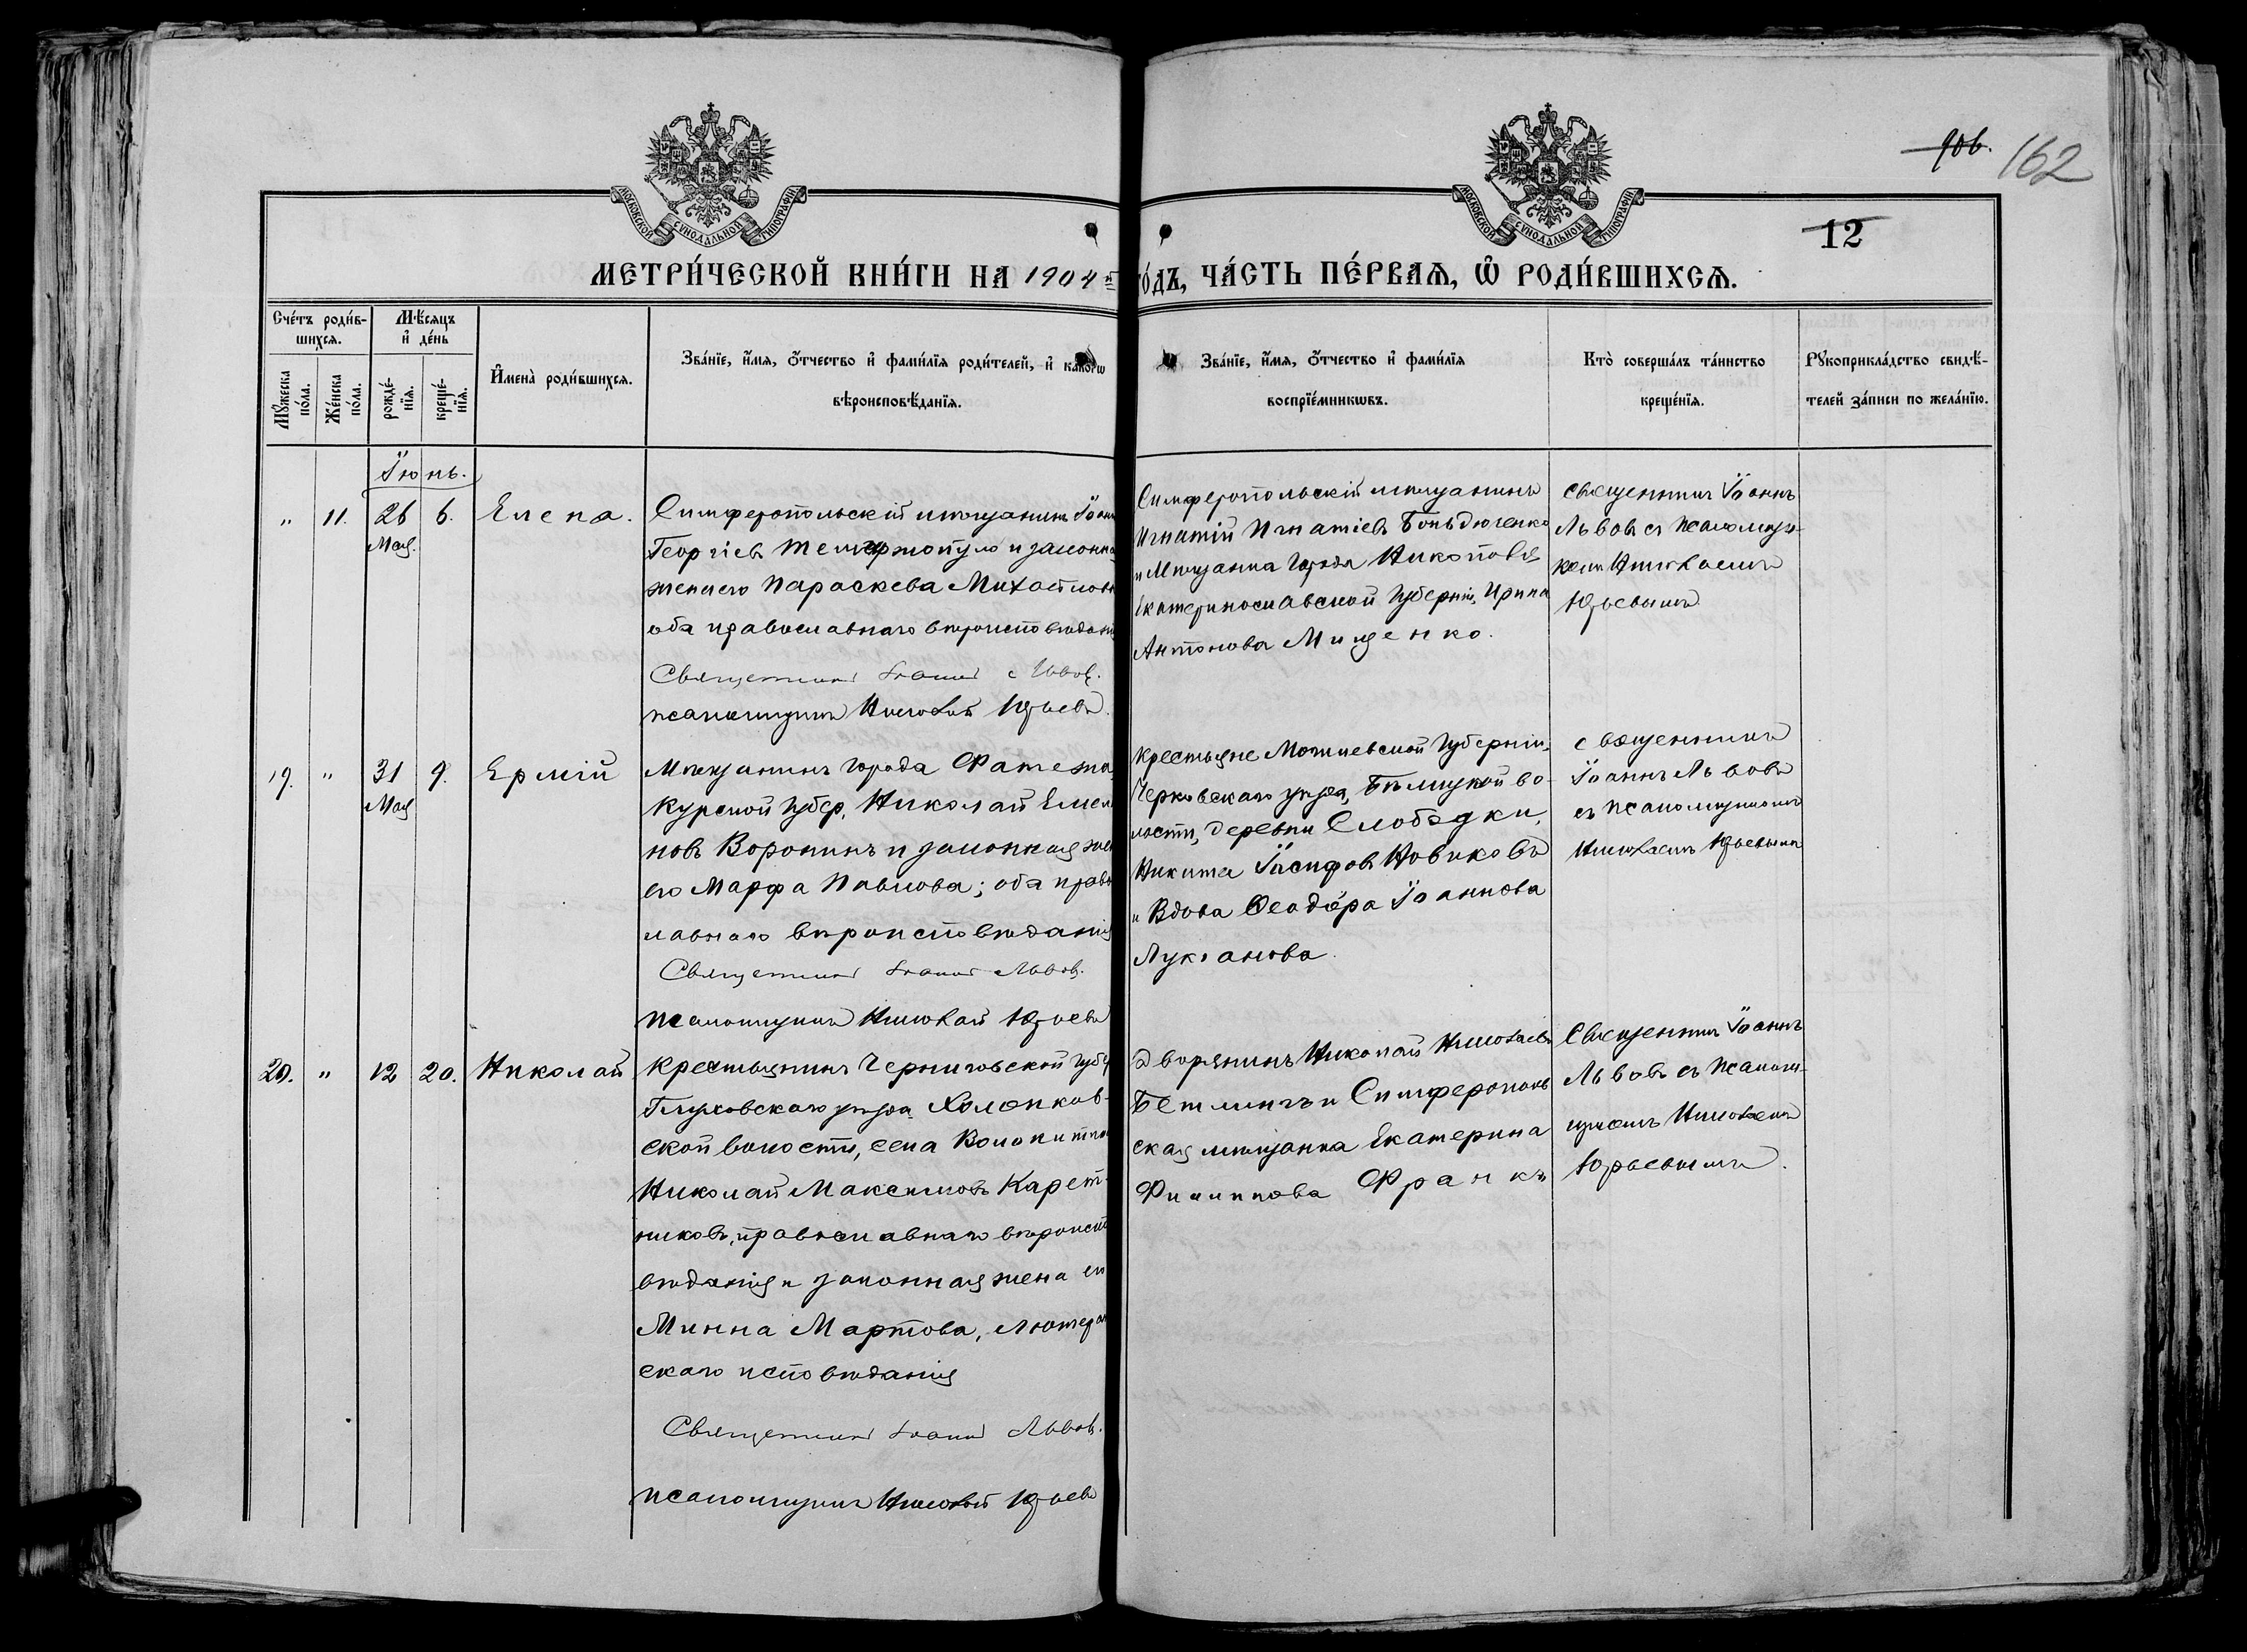 906.
162
МОСКОВСКОЙ СУНОДАЛЬНОЙ ТИПОГРАФІИ
МОСКОВСКОЙ СУНОДАЛЬНОЙ ТИПОГРАФІИ
12
МЕТРИ́ЧЕСКОЙ КНИ́ГИ НА 1904 й
ГО́ДЪ, ЧА́СТЬ ПЕ́РВАЯ, Ѡ҆ РОДИ́ВШИХСЯ.
Сче́тъ роди́в-
шихся.
Мѣ́сяцъ
и҆ де́нь
Мꙋ́жеска по́ла.
Же́нска по́ла.
рожде́-
нїя.
креще́-
нїя.
И҆мена̀ роди́вшихся.
Зва́нїе, и҆́мя, ѻ҆́тчество и҆ фами́лїя роди́телей, и҆ како́гѡ
вѣроисповѣ́данїя.
Зва́нїе, и҆́мя, ѻ҆́тчество и҆ фами́лїя
воспрїе́мникѡвъ.
Кто̀ соверша́лъ та́инство
креще́нїя.
Рꙋкоприкла́дство свидѣ́-
телей за́писи по жела́нїю.
Іюнь.
" 11. 26 6. Елена.
Мая.
Симферопольскій мѣщанинъ Іоан
Георгіевъ и законна
жена его Параскева Михайлов
оба православнаго вѣроисповѣдан
Священникъ Іоаннъ Львов.
псаломщикъ Николай Юрьевъ.
Симферопольскій мѣщанинъ
Игнатій Игнатіевъ Бондюченко
и Мѣщанка города Никополя
Екатеринославской Губерніи, Ирина
Антонова Мищенко.
Священникъ Іоаннъ
Львовъ съ псаломщи-
комъ Николаемъ
Юрьевымъ
19. " 31 9. Ермій
Мая
Мѣщанинъ города Фатежа
Курской Губер. Николай Емел
новъ Воронинъ и законная жен
его Марфа Павлова; оба право
лавнаго вѣроисповѣданія
Священникъ Іоаннъ Львов.
псаломщикъ Николай Юрьевъ
Крестьяне Могилевской Губерніи,
Черковскаго уѣзда, Бѣлицкой во-
лости, деревни Слободки,
Никита Іосифовъ Новиковъ
и Вдова Ѳеодора Іоаннова
Луканова.
священникъ
Іоаннъ Львовъ
съ псаломщикомъ
Николаемъ Юрьевымъ
20. " 12 20. Николай
Крестьянинъ Черниговской Губер
Глуховскаго уѣзда Холопков-
ской волости, села
Николай Максимовъ Карет-
никовъ, православнаго вѣроиспо
вѣданія и законная жена ег
Минна Мартова, лютеран
скаго исповѣданія
Священникъ Іоаннъ Львов.
псаломщикъ Николай Юрьевъ
Дворянинъ Николай Николаевъ
Бетлингъ и Симферополь
ская мѣщанка Екатерина
Филиппова Франкъ
Священникъ Іоаннъ
Львовъ съ псалом-
щикомъ Николаемъ
Юрьевымъ.